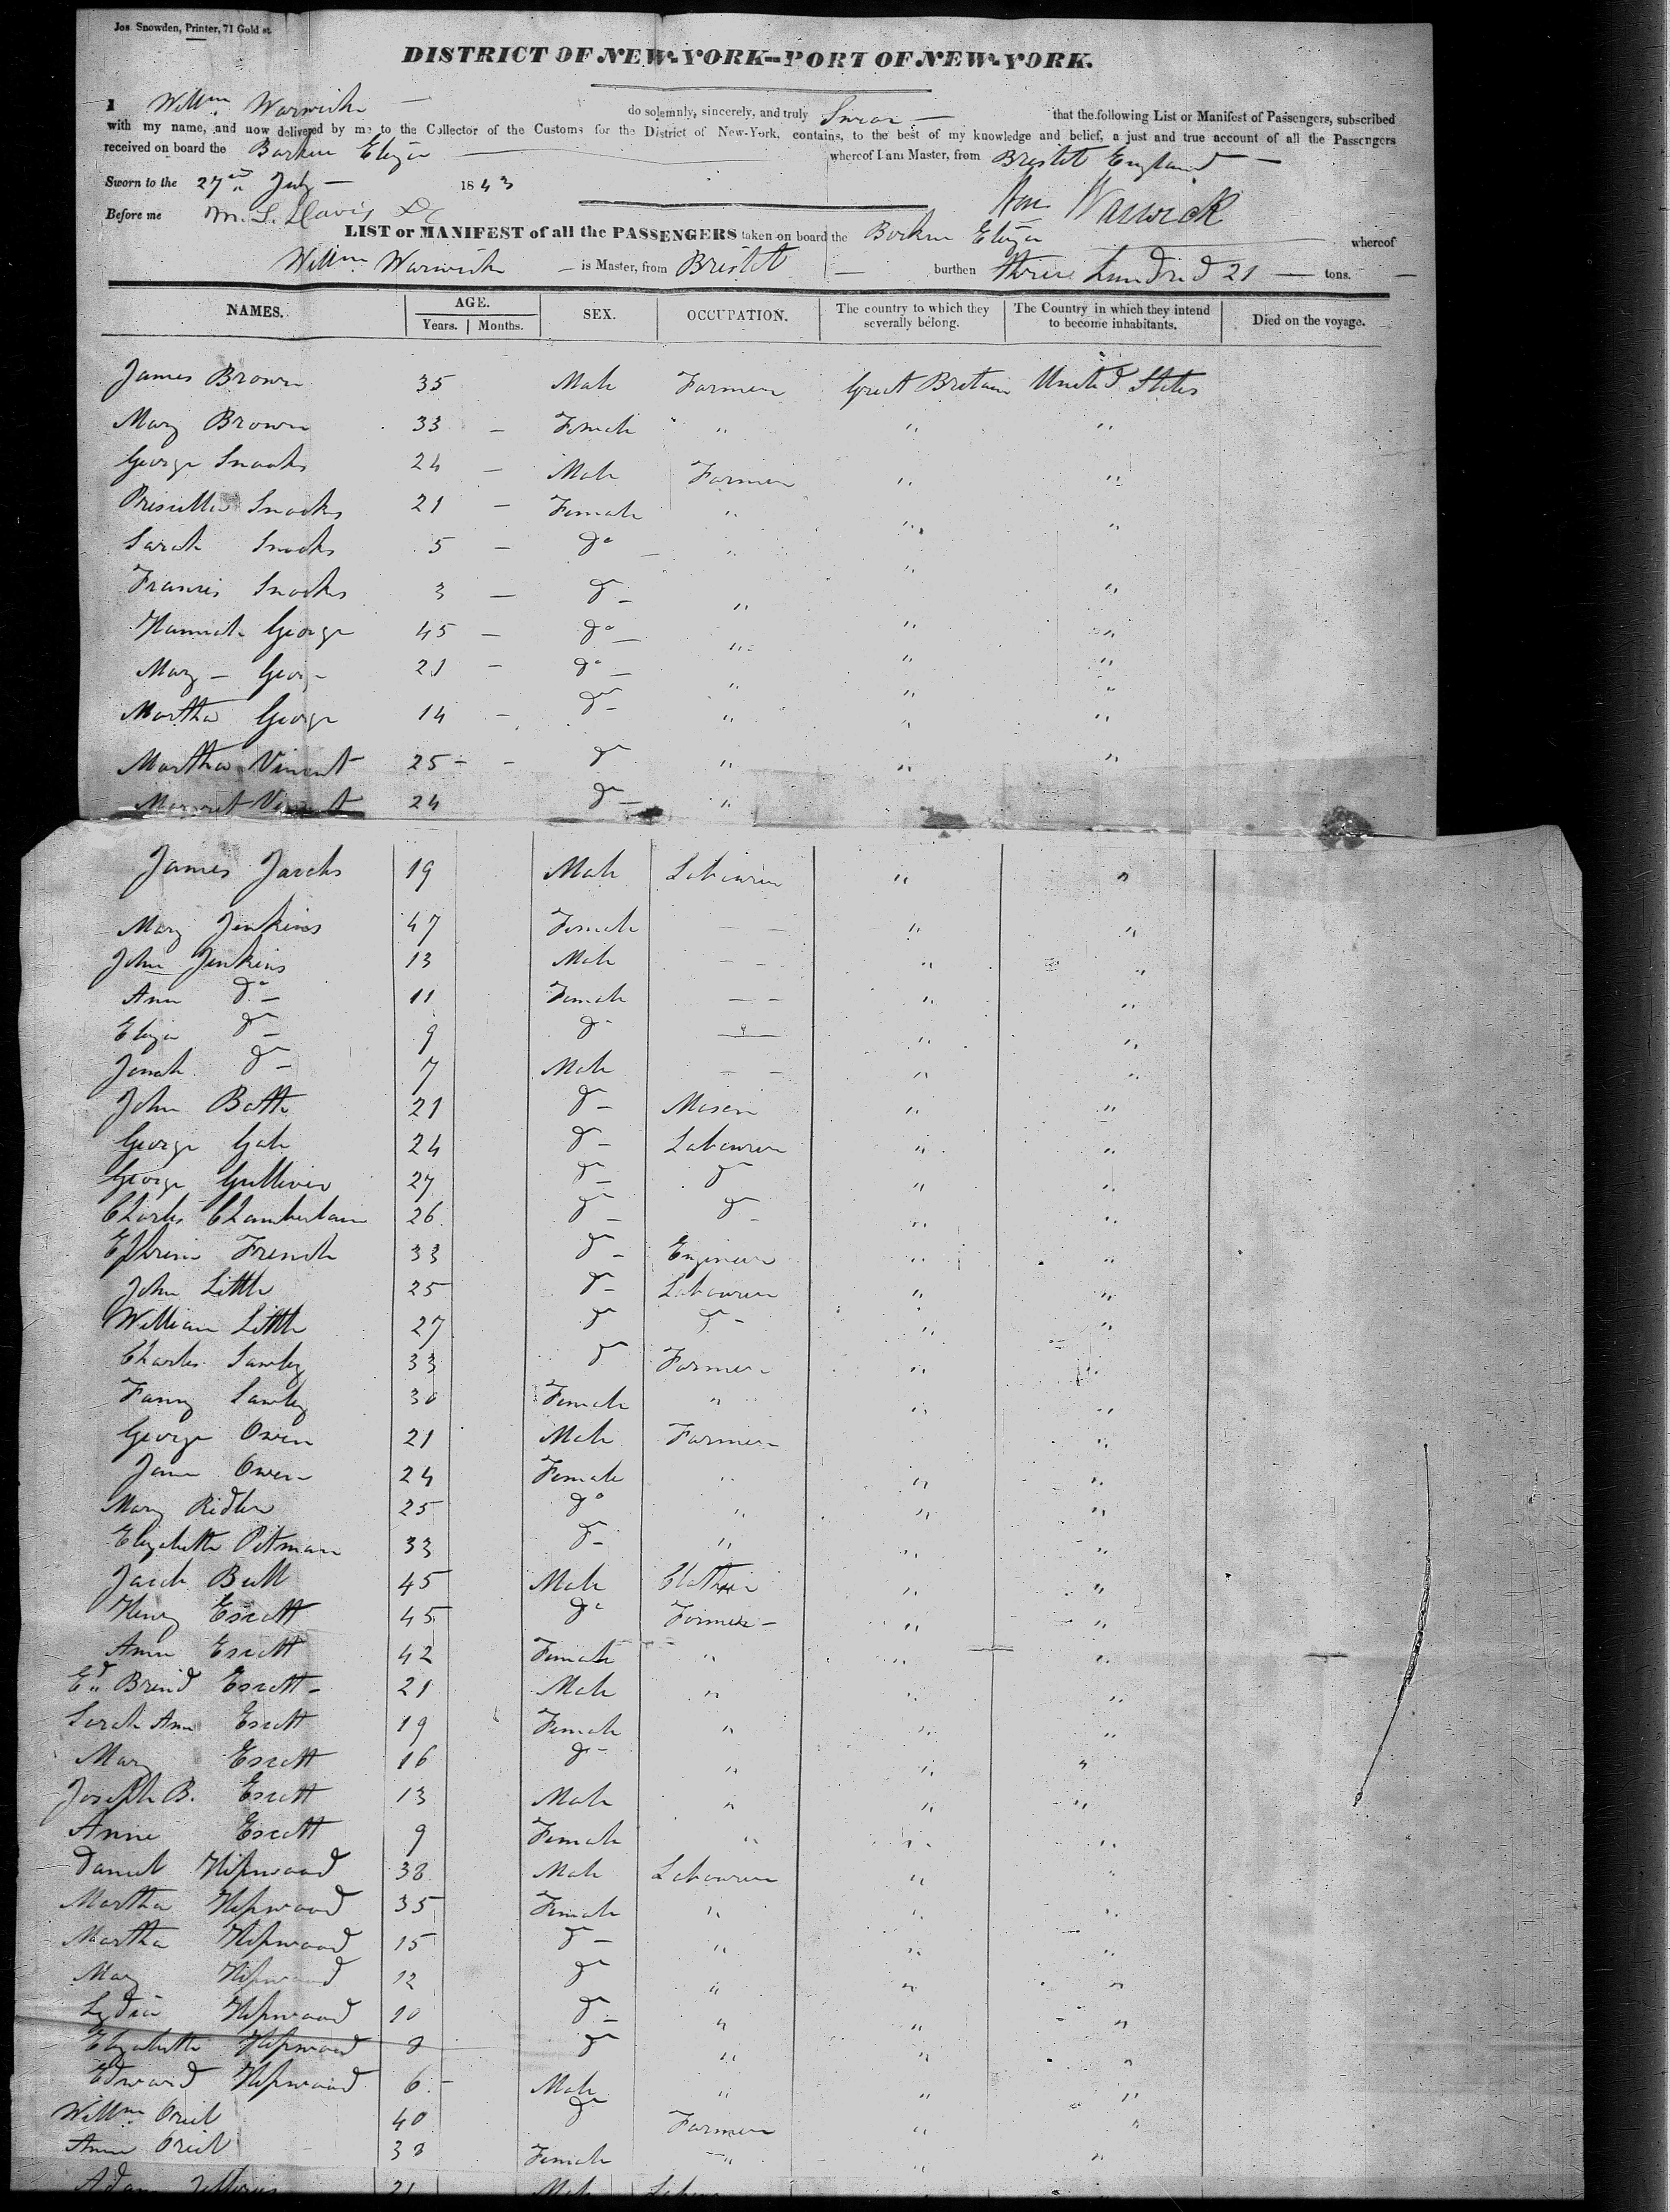 Jos. Snowden, Printer, 71 Gold st.
DISTRICT OF NEW-YORK--PORT OF NEW-YORK.
I Willm Warwick do solemnly, sincerely, and truly Swear that the following List or Manifest of Passengers, subscribed
with my name, and now delivered by me to the Collector of the Customs for the District of New-York, contains, to the best of my knowledge and belief, a just and true account of all the Passengers
received on board the Barkue Eliza whereof I am Master, from Bristol England
Sworn to the 27th July 1843
Wm Warwick
Before me M. L. Davis
LIST or MANIFEST of all the PASSENGERS taken on board the Barkue Eliza whereof
Willm Warwick is Master, from Bristol burthen three hundred 21 tons.
NAMES. AGE. Years. Months. SEX. OCCUPATION. The country to which they severally belong. The Country in which they intend to become inhabitants. Died on the voyage.
James Brown 35 Male Farmer Great Britain United States
Mary Brown 33 — Female " " "
George Snooks 24 — Male Farmer " "
Priscilla Snooks 21 — Female " " "
Sarah Snooks 5 — do " "
Francis Snooks 3 — do " " "
Hannah George 45 — do " " "
Mary George 21 — do " " "
Martha George 14 — do " " "
Martha Vincent 25 — do " " "
Margret Vincent 24 do "
James Jacobs 19 Male Labourer " "
Mary Jenkins 47 Female — — " "
John Jenkins 13 Male — — " "
Ann do 11 Female — — " "
Eliza do 9 do — " "
Jonah do 7 Male — — " "
John Batt 21 do Mason " "
George Gale 24 do Labourer " "
George Gulliver 27 do do " "
Charles Chamberlain 26 do do " "
Ephrim French 33 do Engineer " "
John Little 25 do Labourer " "
William Little 27 do do " "
Charles 33 do Farmer " "
Fanny 30 Female " " "
George Owen 21 Male Farmer "
Jane Owen 24 Female " " "
Mary Ridler 25 do " " "
Elizabeth Pitman 33 do " " "
Jacob Bull 45 Male Clothier " "
Henry Escott 45 do Farmer " "
Ann Escott 42 Female " " "
Ed. Brind Escott 21 Male " " "
Sarah Ann Escott 19 Female " " "
Mary Escott 16 do " " "
Joseph B. Escott 13 Male " " "
Anne Escott 9 Female " " "
Daniel Hipwood 38 Male Labourer " "
Martha Hipwood 35 Female " " "
Martha Hipwood 15 do " " "
Mary Hipwood 12 do " " "
Lydia Hipwood 10 do " " "
Elizabeth Hipwood 8 do " " "
Edward Hipwood 6 Male " " "
Willm 40 do Farmer " "
Ann 38 Female " " "
Adam 21 Male